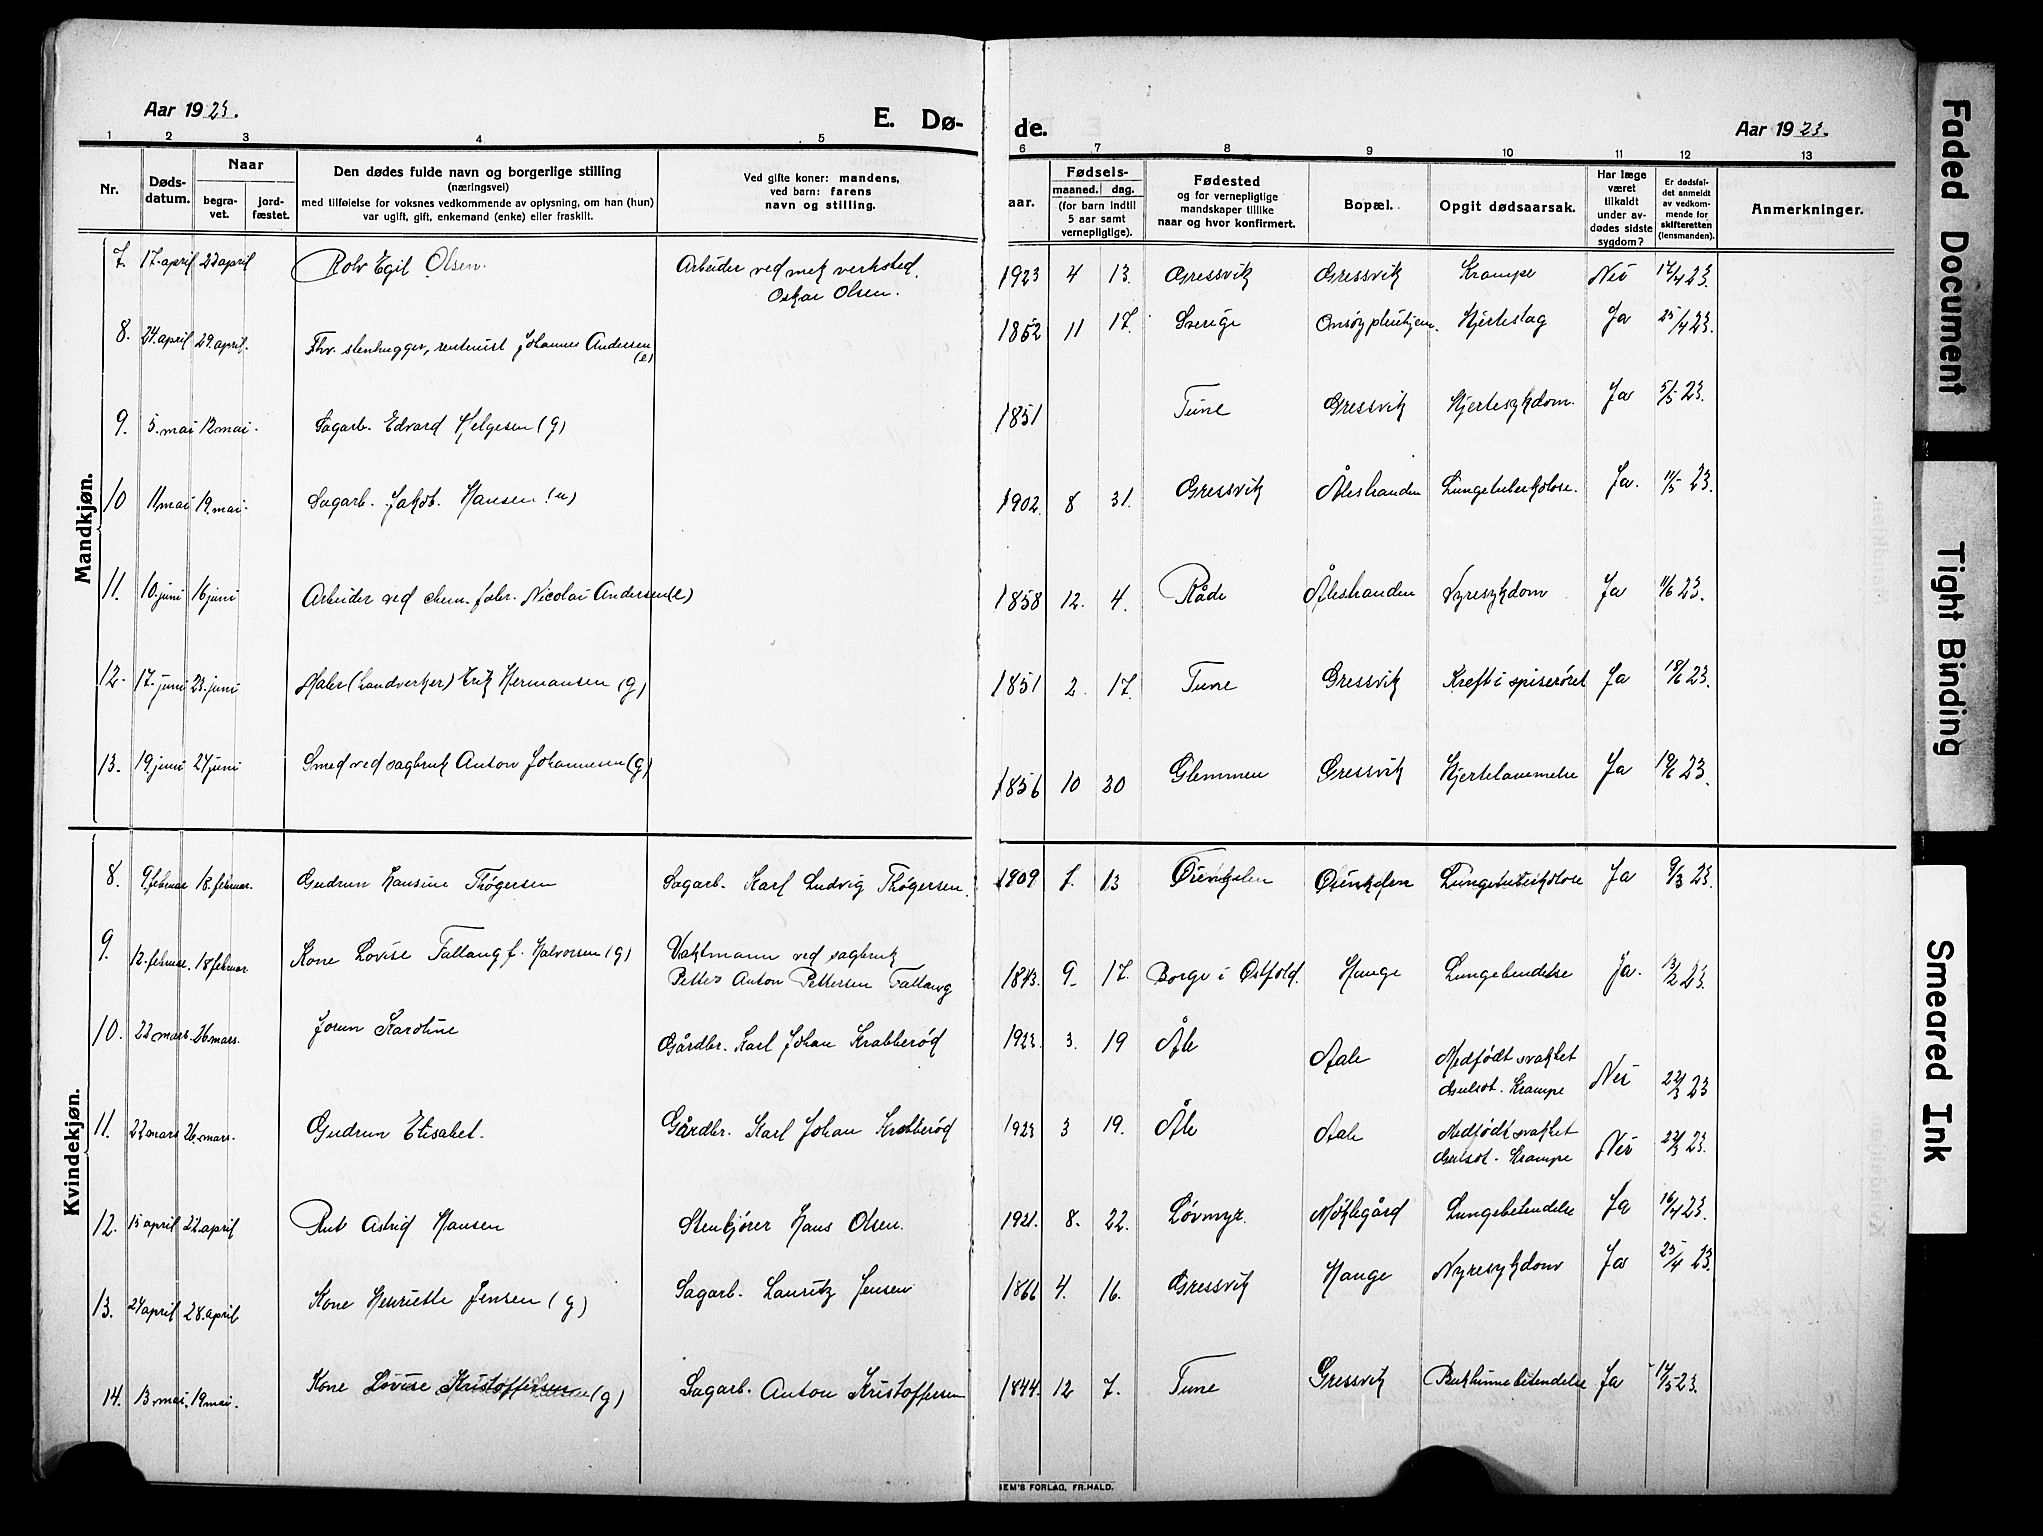 Aar 1923.
E. Dø-
1 2 3 4 5
Nr.
Døds-
datum.
Naar
begra-
vet.
jord-
fæstet.
Den dødes fulde navn og borgerlige stilling
(næringsvei)
med tilføielse for voksnes vedkommende av oplysning, om han (hun)
var ugift, gift, enkemand (enke) eller fraskilt.
Ved gifte koner: mandens,
ved barn: farens
navn og stilling.
Mandkjøn.
7. 17. april 23 april Rolv Egil Olsen. Arbeider ved mek verksted.
Oskar Olsen.
8. 24. april 29. april. Fhv. stenhugger, rentenist Johannes Andersen
(e)
9. 5. mai 12 mai. Sagarb. Edvard Helgesen (g)
10 11. mai 19. mai. Sagarb. Jakob. Hansen (u)
11. 10. juni 16 juni Arbeider ved chem. fabr. Nicolai Andersen (e)
12. 17. juni 23. juni Maler (handverker) Erik Hermansen (g)
13. 19. juni 24 juni Smed ved sagbruk Anton Johannesen (g)
Kvindekjøn.
8. 9. februar 18. februar. Gudrun Hansine Thøgersen Sagarb. Karl Ludvig Thøgersen.
9. 12. februar. 18 februar. Kone Lovise Fallang f. Halvorsen (g) Vaktmann ved sagbruk
Petter Anton Pettersen Fallang
10. 22 mars. 26 mars. Jorun Karoline Gårdbr. Karl Johan Krabberød
11. 22 mars 26. mars. Gudrun Elisabet. Gårdbr. Karl Johan Krabberød
12. 15 april 22. april Rut Astrid Hansen Stenkjører Hans Olsen.
13. 24 april 28. april Kone Henriette Jensen (g) Sagarb. Lauritz Jensen
14. 13. mai. 19 mai. Kone Lovise Kristoffersen (g) Sagarb. Anton Kristoffersen
de.
Aar 1923.
6 7 8 9 10 11 12 13
aar.
Fødsels-
maaned. dag.
(for barn indtil
5 aar samt
vernepligtige).
Fødested
og for vernepligtige
mandskaper tillike
naar og hvor konfirmert.
Bopæl.
Opgit dødsaarsak.
Har læge
været
tilkaldt
under av-
dødes sidste
sygdom?
Er dødsfal-
det anmeldt
av vedkom-
mende for
skifteretten
(lensmanden).
Anmerkninger.
1923 4 13. Gressvik Gressvik Krampe Nei 17/4 23.
1852 11 17. Sverige Onsøy pleiehjem. Hjerteslag Ja 25/4 23.
1851 Tune Gressvik Hjertesykdom. Ja 5/5 23.
1902. 8 31. Gressvik Ålestranden Lungetuberkolose. Ja. 11/5 23.
1858 12. 4. Råde Ålestranden Nyresykdom Ja 11/6 23.
1851 2. 17. Tune Gressvik Kreft i spiserøret Ja 18/6 23.
1856 10 30 Glemmen Gressvik Hjertelammelse Ja 19/6 23.
1909 7. 13 Lungetuberkolose Ja 9/3 23.
1843. 9. 17. Borge i Østfold. Hauge Lungebendelse Ja. 13/2 23.
1923. 3. 19 Åle Aale Medfødt svakhet
Gulsot. Krampe Nei 22/3 23
1923 3 19. Åle Aale Medfødt svakhet
Gulsot. Krampe Nei 22/3 23.
1921. 8. 22. Løvmyr. Møklegård Lungebetendelse Ja 16/4 23.
1866 4. 16. Gressvik Hauge Nyresykdom Ja 25/4 23.
1844. 12 7. Tune Gressvik Bukhinnebetendelse Ja 14/5 23.
SEM'S FORLAG, FR.HALD.
Faded Document
Tight Binding
Smeared Ink